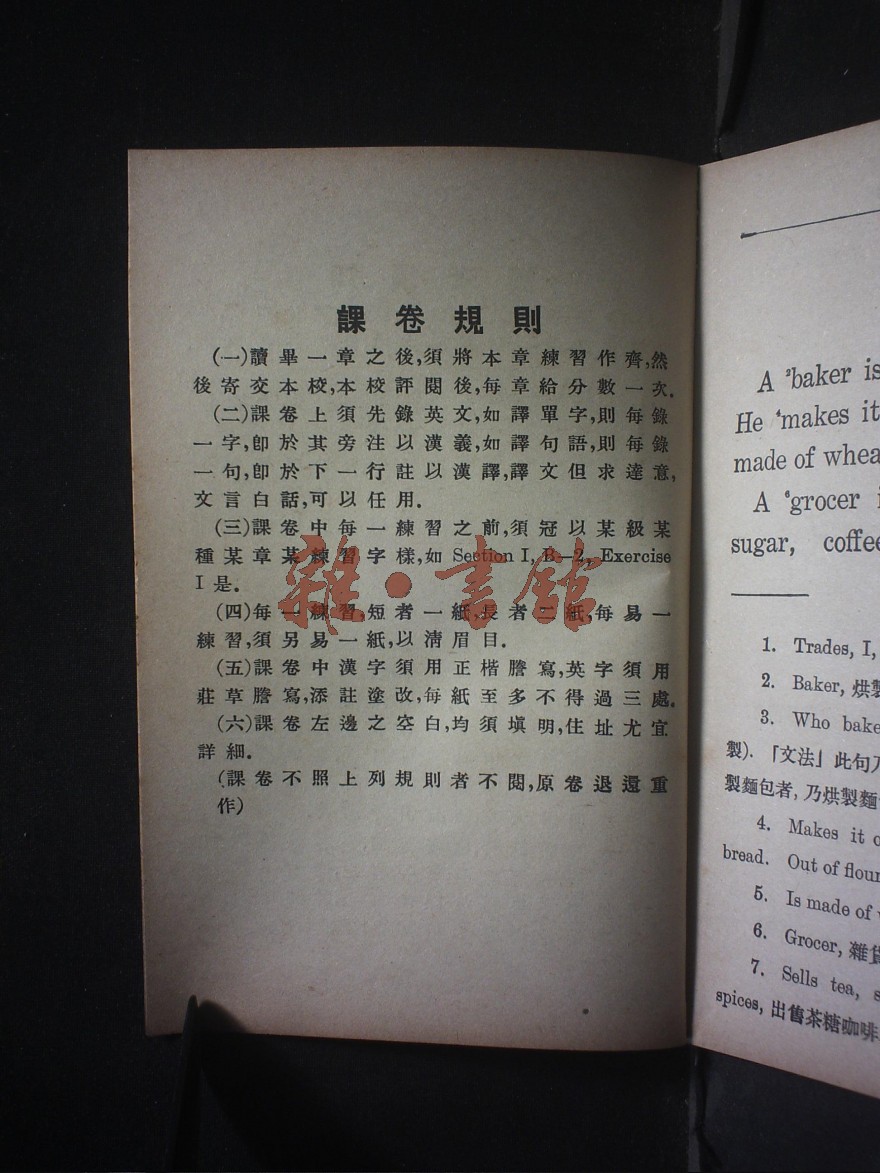 課卷規則
(一)讀畢一章之後,須將本章練習作齊,然
後寄交本校,本校評閱後,每章給分數一次.
(二)課卷上須先錄英文,如譯單字,則每錄
一字,卽於其旁注以漢義,如譯句語,則每錄
一句,卽於下一行註以漢譯,譯文但求達意,
文言白話,可以任用.
(三)課卷中每一練習之前,須冠以某級某
種某章某練習字樣,如 Section I, B—2, Exercise
I 是.
(四)每一練習,短者一紙,長者二紙,每易一
練習,須另易一紙,以淸眉目.
(五)課卷中漢字須用正楷謄寫,英字須用
莊草謄寫,添註塗改,每紙至多不得過三處.
(六)課卷左邊之空白,均須塡明,住址尤宜
詳細.
(課卷不照上列規則者不閱,原卷退還重
作)
雜·書館
A ²baker is
He ⁴makes it
made of whea
A ⁶grocer i
sugar, coffee
1. Trades, I,
2. Baker, 烘製
3. Who bake
製). 「文法」此句乃
製麵包者, 乃烘製麵
4. Makes it o
bread. Out of flour
5. Is made of
6. Grocer, 雜貨
7. Sells tea, s
spices, 出售茶糖咖啡